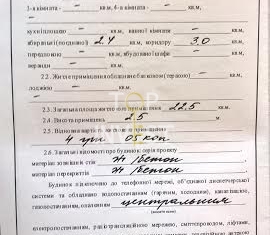 2-а кімната – — кв.м, 4-а кімната – — кв.м,
кухні площею — кв.м, ванної кімнати — кв.м,
вбиральні (поєднаної) 2.4 кв.м, коридору 3.0 кв.м,
передпокою — кв.м, вбудованої шафи — кв.м,
веранди — кв.м.
2.2. Житлове приміщення обладнане балконом — кв.м,
лоджією — кв.м.
2.3. Загальна площа житлового приміщення 22.5 кв.м.
2.4. Висота приміщень 2.5 м.
4 грн. 05 коп.
2.6. Загальні відомості про будинок: серія проекту
матеріал зовнішніх стін ж/бетон
матеріал перекриття ж/бетон
Будинок підключено до телефонної мережі, об'єднаної диспетчерської
системи та обладнано водопостачанням (гарячим, холодним), каналізацією,
газопостачанням, опаленням центральним
електроопаленням, радіотрансляційною мережею, сміттєпроводом, ліфтами,